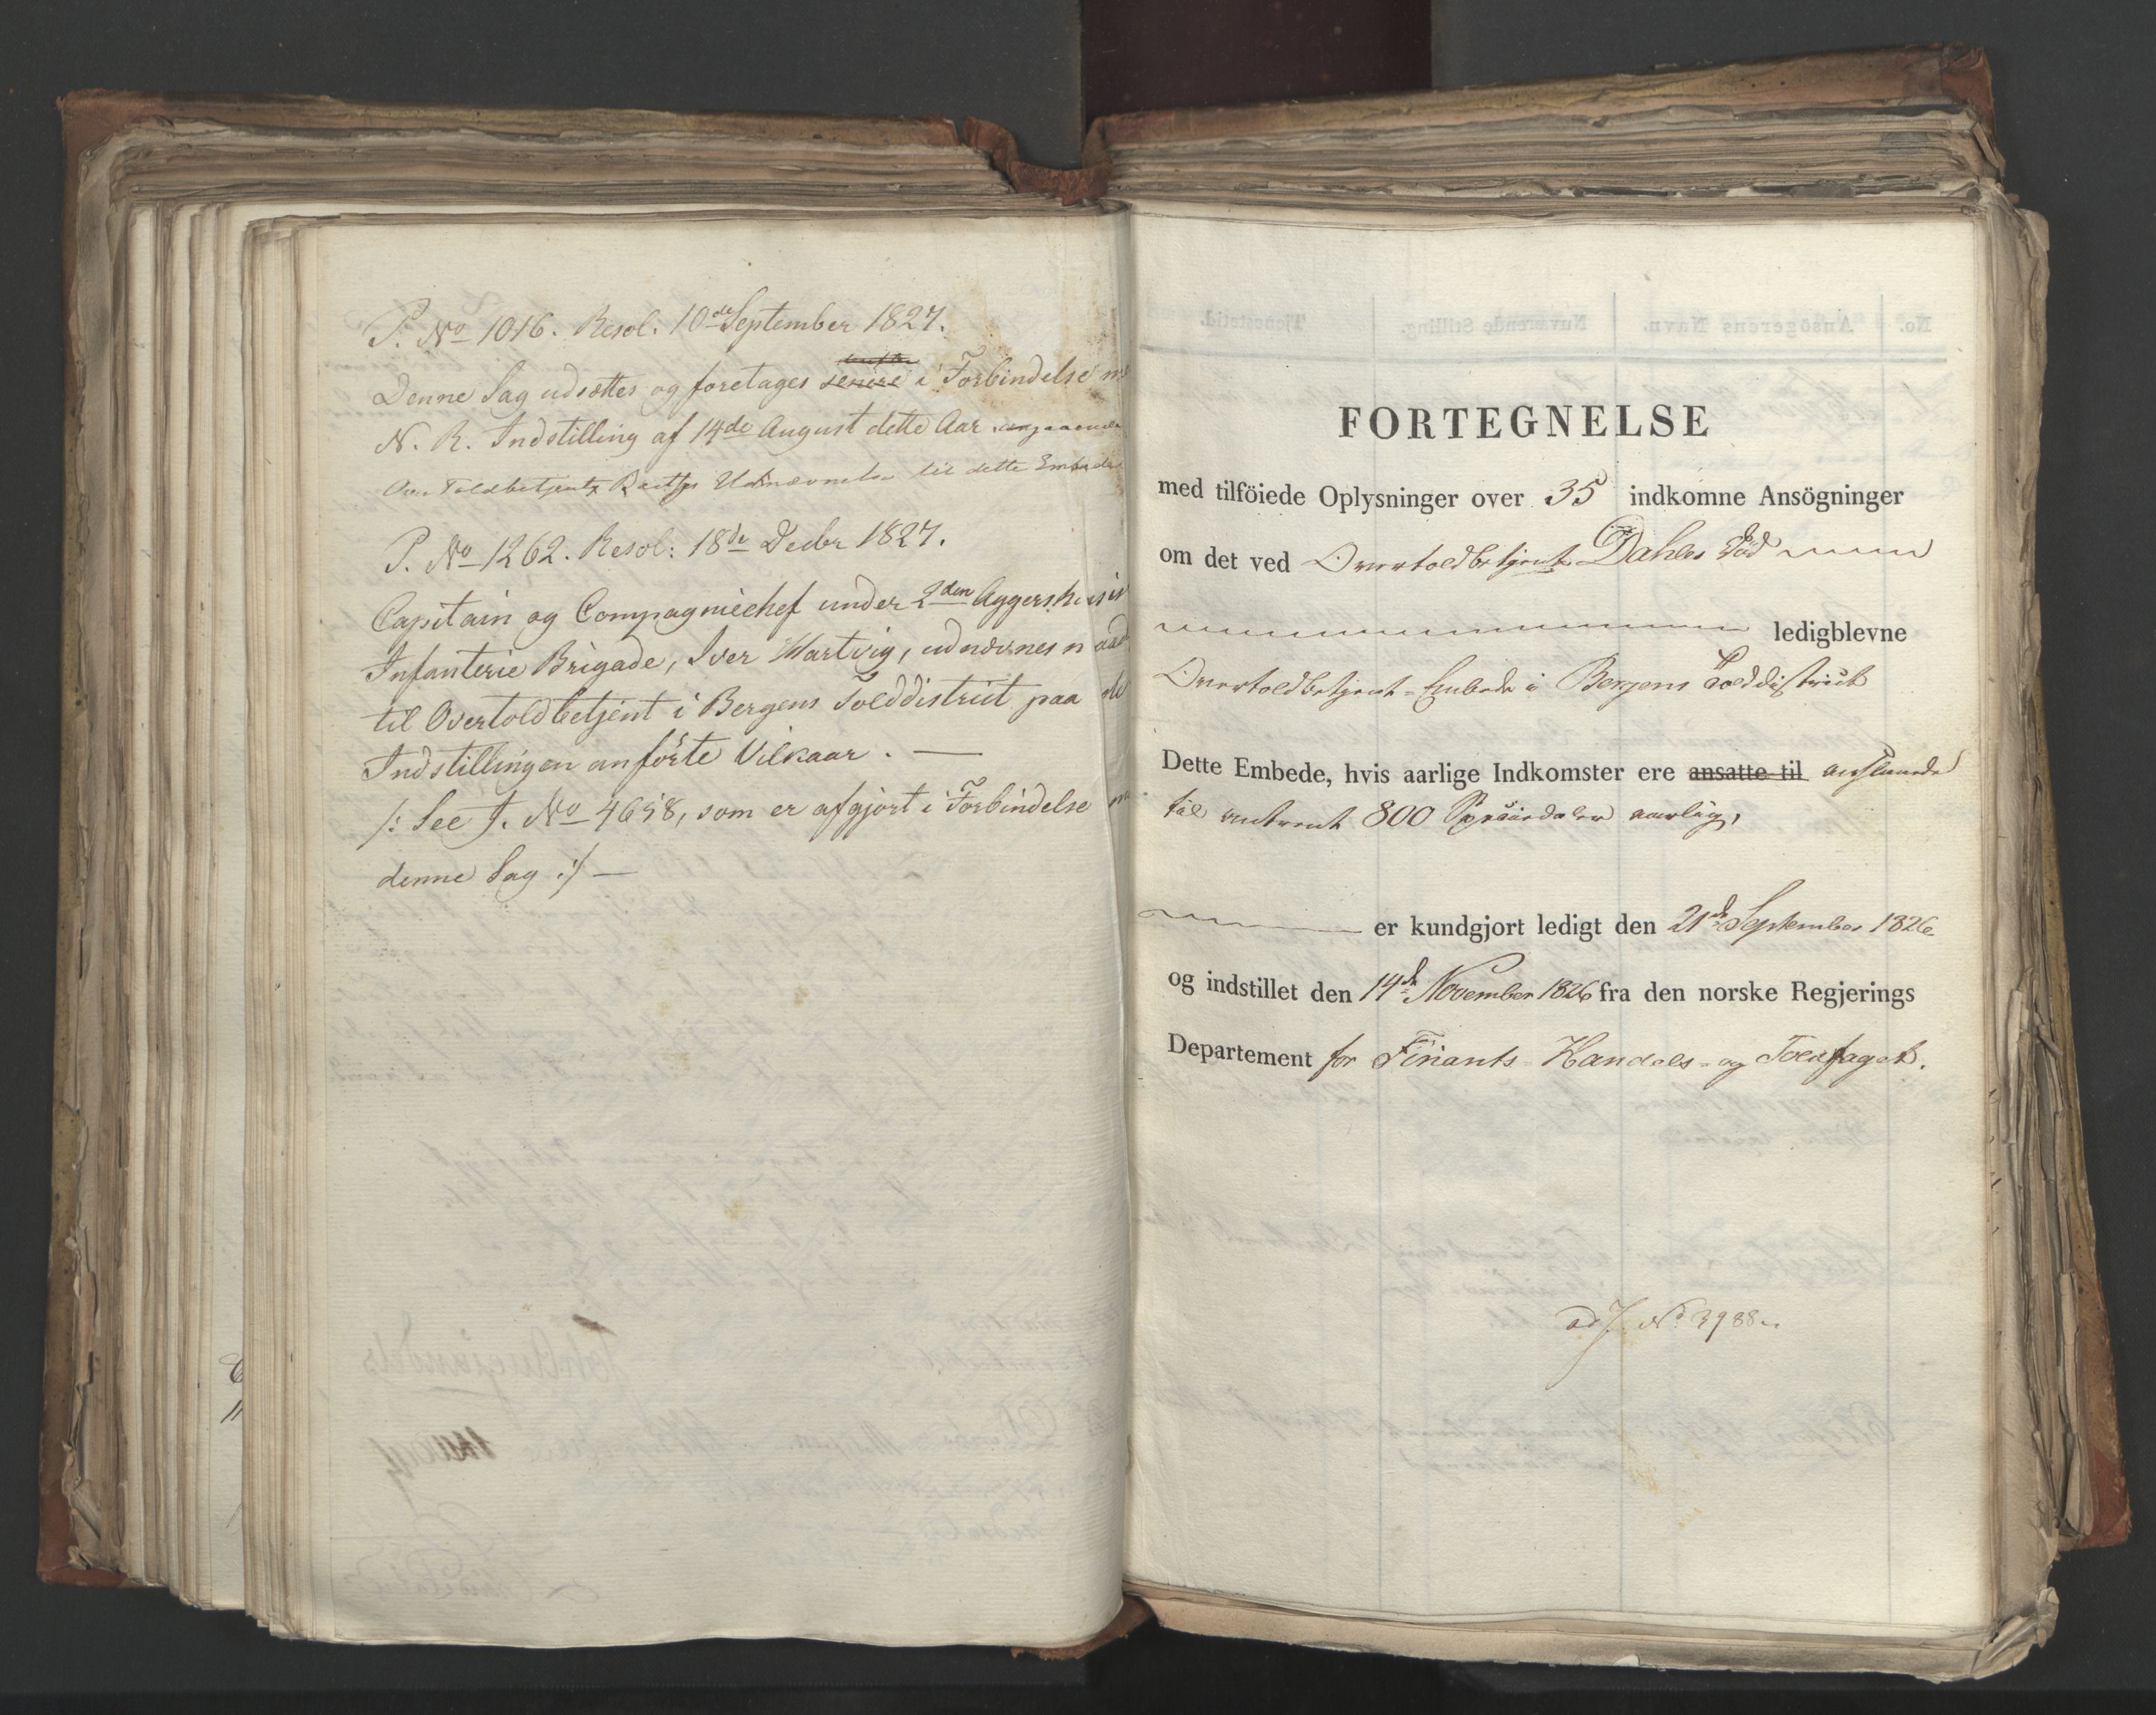 P. No 1016. Resol: 10de September 1827.
Denne Sag udsættes og foretages senere i Forbindelse m
N. R. Indstilling af 14de August dette Aar angaaende
Over Toldbetjent Udnævnelse til dette Embede
P. No 1262. Resol: 18de Decbr 1827.
Capitain og Compagniechef under 2den Aggershusiske
Infanterie Brigade, Iver Hartvig, udnævnes n aad
til Overtoldbetjent i Bergens Tolddistrict paa de
Indstillingen anförte Vilkaar. —
/: See J. No 4658, som er afgjort i Forbindelse m
denne Sag :/ —
FORTEGNELSE
med tilföiede Oplysninger over 35 indkomne Ansögninger
om det ved Overtoldbetjent Dahles Död
ledigblevne
Overtoldbetjent-Embede i Bergens Tolddistrict
Dette Embede, hvis aarlige Indkomster ere ansatte til anslaaede
til omtrent 800 Speciedaler aarlig,
er kundgjort ledigt den 21de September 1826
og indstillet den 14de November 1826 fra den norske Regjerings
Departement for Finants- Handels- og Toldfaget.
ad J. No 3988.